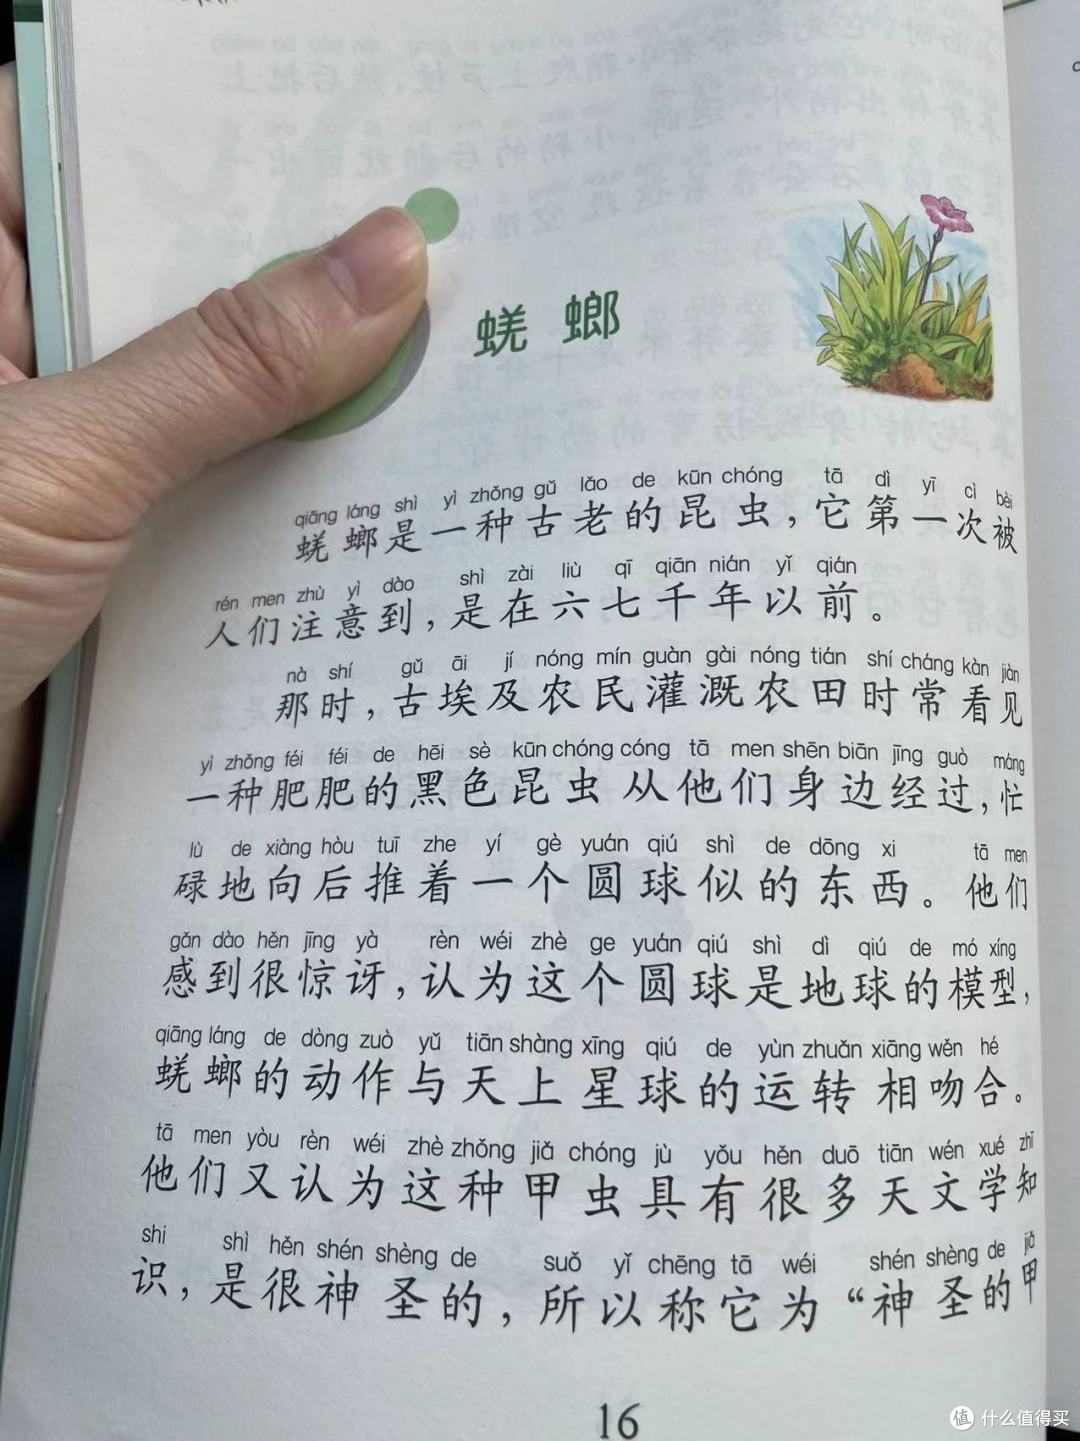 蜣螂
qiāng láng shì yì zhǒng gǔ lǎo de kūn chóng tā dì yī cì bèi
蜣螂是一种古老的昆虫，它第一次被
rén men zhù yì dào shì zài liù qī qiān nián yǐ qián
人们注意到，是在六七千年以前。
nà shí gǔ āi jí nóng mín guàn gài nóng tián shí cháng kàn jiàn
那时，古埃及农民灌溉农田时常看见
yì zhǒng féi féi de hēi sè kūn chóng cóng tā men shēn biān jīng guò máng
一种肥肥的黑色昆虫从他们身边经过，忙
lù de xiàng hòu tuī zhe yí gè yuán qiú shì de dōng xi tā men
碌地向后推着一个圆球似的东西。他们
gǎn dào hěn jīng yà rèn wéi zhè ge yuán qiú shì dì qiú de mó xíng
感到很惊讶，认为这个圆球是地球的模型，
qiāng láng de dòng zuò yǔ tiān shàng xīng qiú de yùn zhuǎn xiāng wěn hé
蜣螂的动作与天上星球的运转相吻合。
tā men yòu rèn wéi zhè zhǒng jiǎ chóng jù yǒu hěn duō tiān wén xué zhī
他们又认为这种甲虫具有很多天文学知
shi shì hěn shén shèng de suǒ yǐ chēng tā wéi shén shèng de jiǎ
识，是很神圣的，所以称它为“神圣的甲
16
值 什么值得买